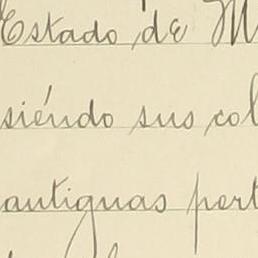 Estado de M
siéndo sus col
antiguas pert